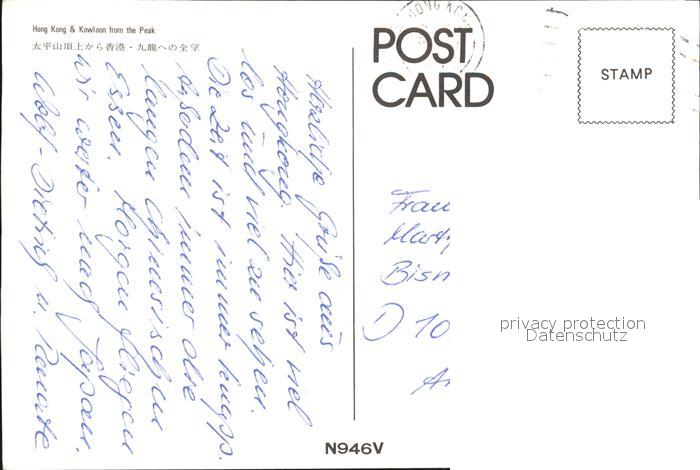 Hong Kong & Kowloon from the Peak
太平山頂上から香港・九龍への全望
Herzliche Grüße aus
Hongkong. Hier ist viel
los und viel zu sehen.
Die Zeit ist immer knapp.
Außerdem immer die
langen chinesischen
Essen. Morgen fliegen
wir weiter nach Japan.
Wolf-Dietrich u. Renate
HONG KONG
POST
CARD
STAMP
Frau
Bism
D 10
privacy protection
Datenschutz
N946V